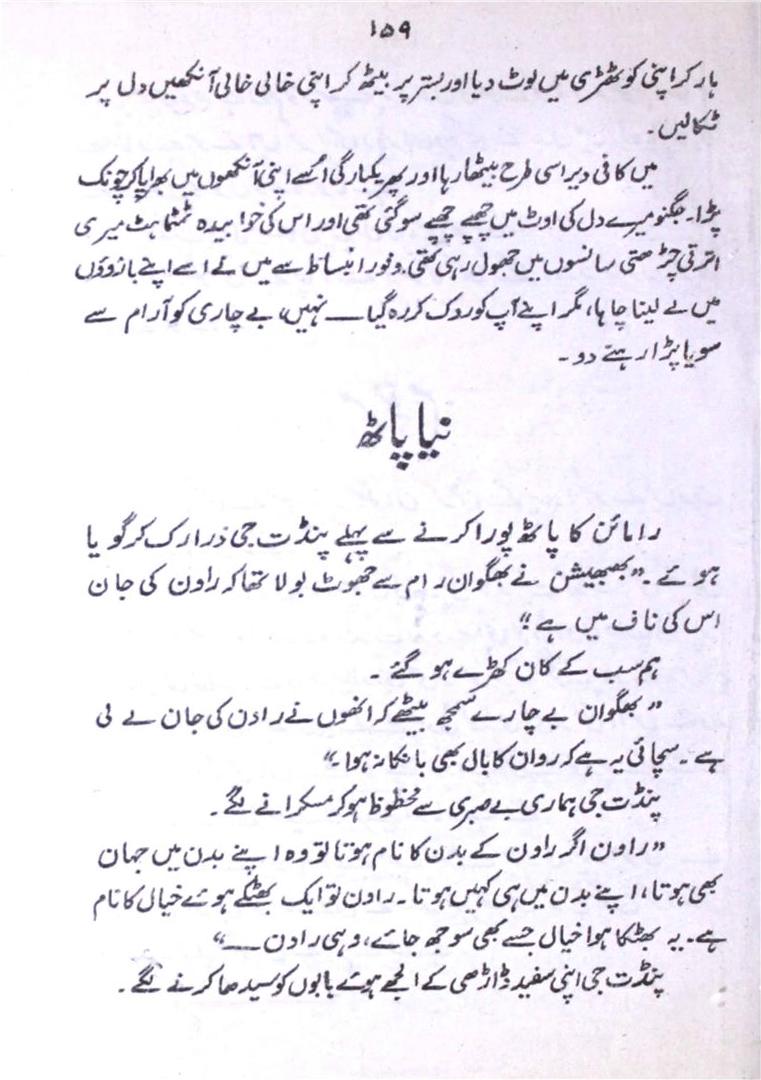 ۱۵۹
ہار کر اپنی کوٹھڑی میں لوٹ دیا اور بستر پر بیٹھ کر اپنی خالی خالی آنکھیں دل پر
ٹکالیں۔
میں کافی دیر اسی طرح بیٹھا رہا اور پھر یکبارگی اُسے اپنی آنکھوں میں بھرا پا کر چونک
پڑا۔ جگنو میرے دل کی اوٹ میں چھپے چھپے سو گئی تھی اور اس کی خوابیدہ ٹمٹماہٹ میری
اترتی چڑھتی سانسوں میں جھول رہی تھی۔ وفور انبساط سے میں نے اسے اپنے بازوؤں
میں لے لینا چاہا، مگر اپنے آپ کو روک کر رہ گیا — نہیں، بے چاری کو آرام سے
سویا پڑا رہنے دو۔
نیا پاٹھ
رامائن کا پاٹھ پورا کرنے سے پہلے پنڈت جی ذرا رک کر گویا
ہوئے۔ ”بھبھیشن نے بھگوان رام سے جھوٹ بولا تھا کہ راون کی جان
اس کی ناف میں ہے؛“
ہم سب کے کان کھڑے ہو گئے۔
”بھگوان بے چارے سمجھ بیٹھے کہ انھوں نے راون کی جان لے لی
ہے۔ سچائی یہ ہے کہ روان کا بال بھی بانکا نہ ہوا۔“
پنڈت جی ہماری بے صبری سے محظوظ ہو کر مسکرانے لگے۔
”راون اگر راون کے بدن کا نام ہوتا تو وہ اپنے بدن میں جہان
بھی ہوتا، اپنے بدن میں ہی کہیں ہوتا۔ راون تو ایک بھٹکے ہوئے خیال کا نام
ہے۔ یہ بھٹکا ہوا خیال جسے بھی سوجھ جائے، وہی راون —“
پنڈت جی اپنی سفید ڈاڑھی کے الجھے ہوئے بالوں کو سیدھا کرنے لگے۔